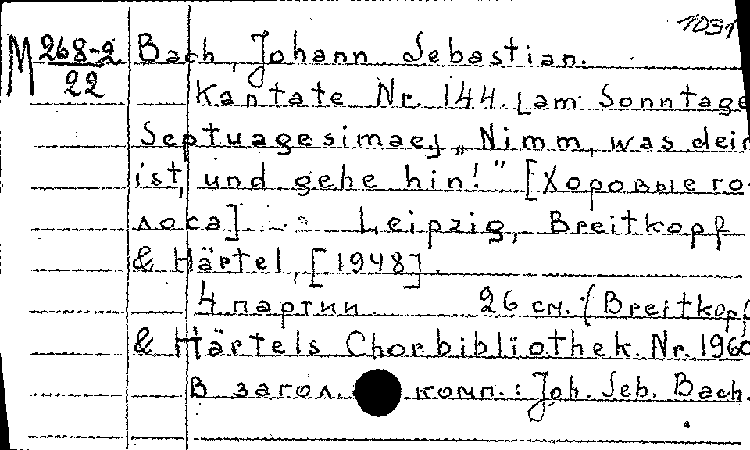 1031
M 268-2
22
Bach, Johann Sebastian.
Kantate Nr. 144. [am Sonntage
Septuagesimae] „Nimm, was dein
ist, und gehe hin!" [Хоровые го-
лоса] - Leipzig, Breitkopf
& Härtel, [1948].
4 партии 26 см. (Breitkopf
& Härtels Chorbibliothek. Nr. 1960
В загол. комп.: Joh. Seb. Bach.